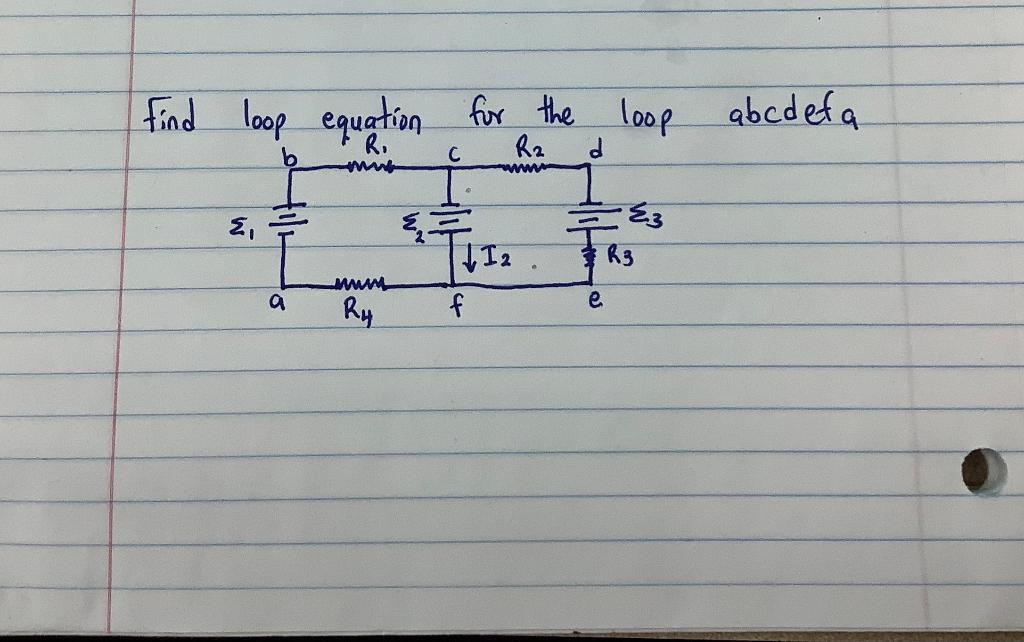 find loop equation for the loop abcdefa
b R1 c R2 d
Σ1 Σ2 Σ3
↓I2 R3
a R4 f e